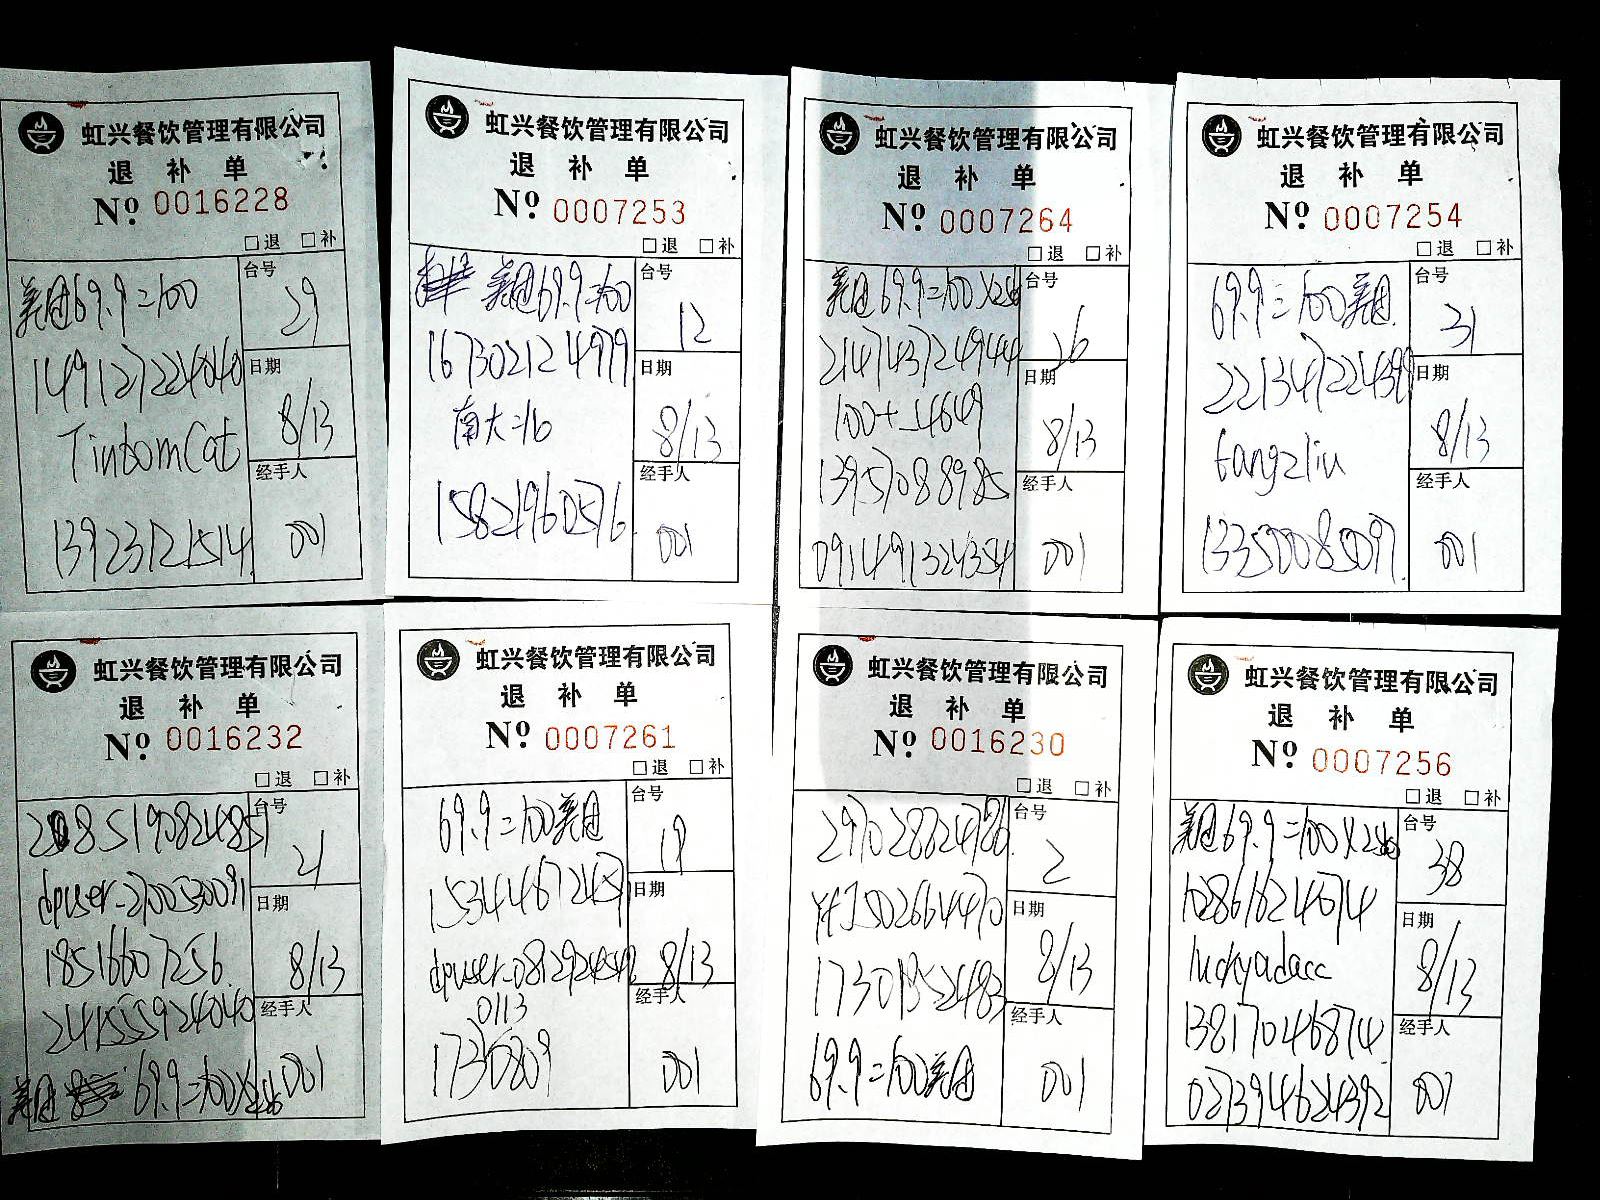 虹兴餐饮管理有限公司
退 补 单
Nº 0016228
□退 □补
美团69.9=100
149127224040
TintomCat
13923121514
台号
29
日期
8/13
经手人
001
虹兴餐饮管理有限公司
退 补 单
Nº 0007253
□退 □补
美团69.9=100
167302124979
南大=16
15821960576
台号
12
日期
8/13
经手人
001
虹兴餐饮管理有限公司
退 补 单
Nº 0007264
□退 □补
美团69.9=100X2
214743724944
100+_4649
13957088985
0914491324354
台号
26
日期
8/13
经手人
001
虹兴餐饮管理有限公司
退 补 单
Nº 0007254
□退 □补
69.9=100美团
221347224399
fangzliu
13350085097
台号
31
日期
8/13
经手人
001
虹兴餐饮管理有限公司
退 补 单
Nº 0016232
□退 □补
dpuser_2700530091
18516607256
241555924040
美团 69.9=100X2
台号
21
日期
8/13
经手人
001
虹兴餐饮管理有限公司
退 补 单
Nº 0007261
□退 □补
69.9=100美团
0113
17330809
台号
19
日期
8/13
经手人
001
虹兴餐饮管理有限公司
退 补 单
Nº 0016230
□退 □补
297028824786
YFJ502664470
69.9=100美团
台号
2
日期
8/13
经手人
001
虹兴餐饮管理有限公司
退 补 单
Nº 0007256
□退 □补
美团69.9=100X2
102861624074
luckyadacc
13817046874
027394624392
台号
38
日期
8/13
经手人
001